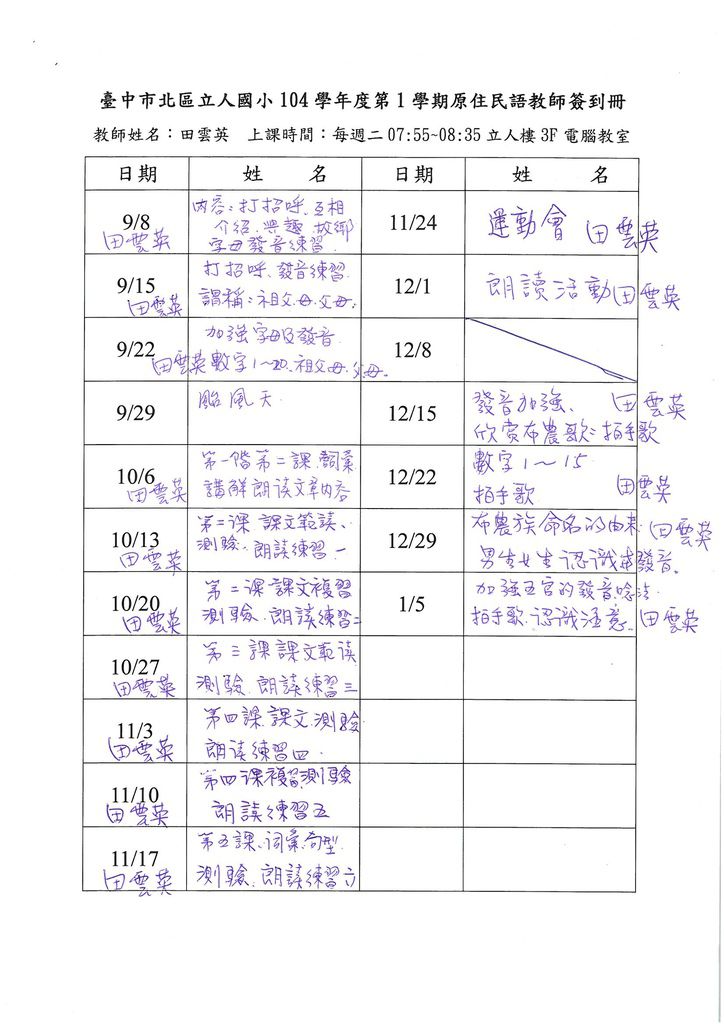 臺中市北區立人國小 104 學年度第 1 學期原住民語教師簽到冊
教師姓名：田雲英 上課時間：每週二 07:55~08:35 立人樓 3F 電腦教室
日期 姓 名 日期 姓 名
9/8
田雲英
內容：打招呼、互相
介紹、興趣、故鄉
字母發音練習.
11/24
運動會 田雲英
9/15
田雲英
打招呼、發音練習.
謂稱：祖父.母.父母.
12/1
朗讀活動 田雲英
9/22
田雲英
加強字母及發音
數字1~20.祖父母.父母.
12/8
9/29
颱風天.
12/15
發音加強、 田雲英
欣賞布農歌：拍手歌
10/6
田雲英
第一階第二課.詞彙
講解朗读文章內容
12/22
數字1～15
拍手歌 田雲英
10/13
田雲英
第二课 課文範读、
測驗、朗讀練習一
12/29
布農族命名的由来 田雲英
男生女生認識發音。
10/20
田雲英
第二課課文複習
測驗.朗讀練習二
1/5
加強五官的發音唸法
拍手歌.認識注意.. 田雲英
10/27
田雲英
第三課課文範读
測驗.朗讀練習三
11/3
田雲英
第四課.課文.測驗
朗读練習四.
11/10
田雲英
第四课複習測驗
朗讀練習五
11/17
田雲英
第五課、词彙.句型
測驗、朗讀練習六